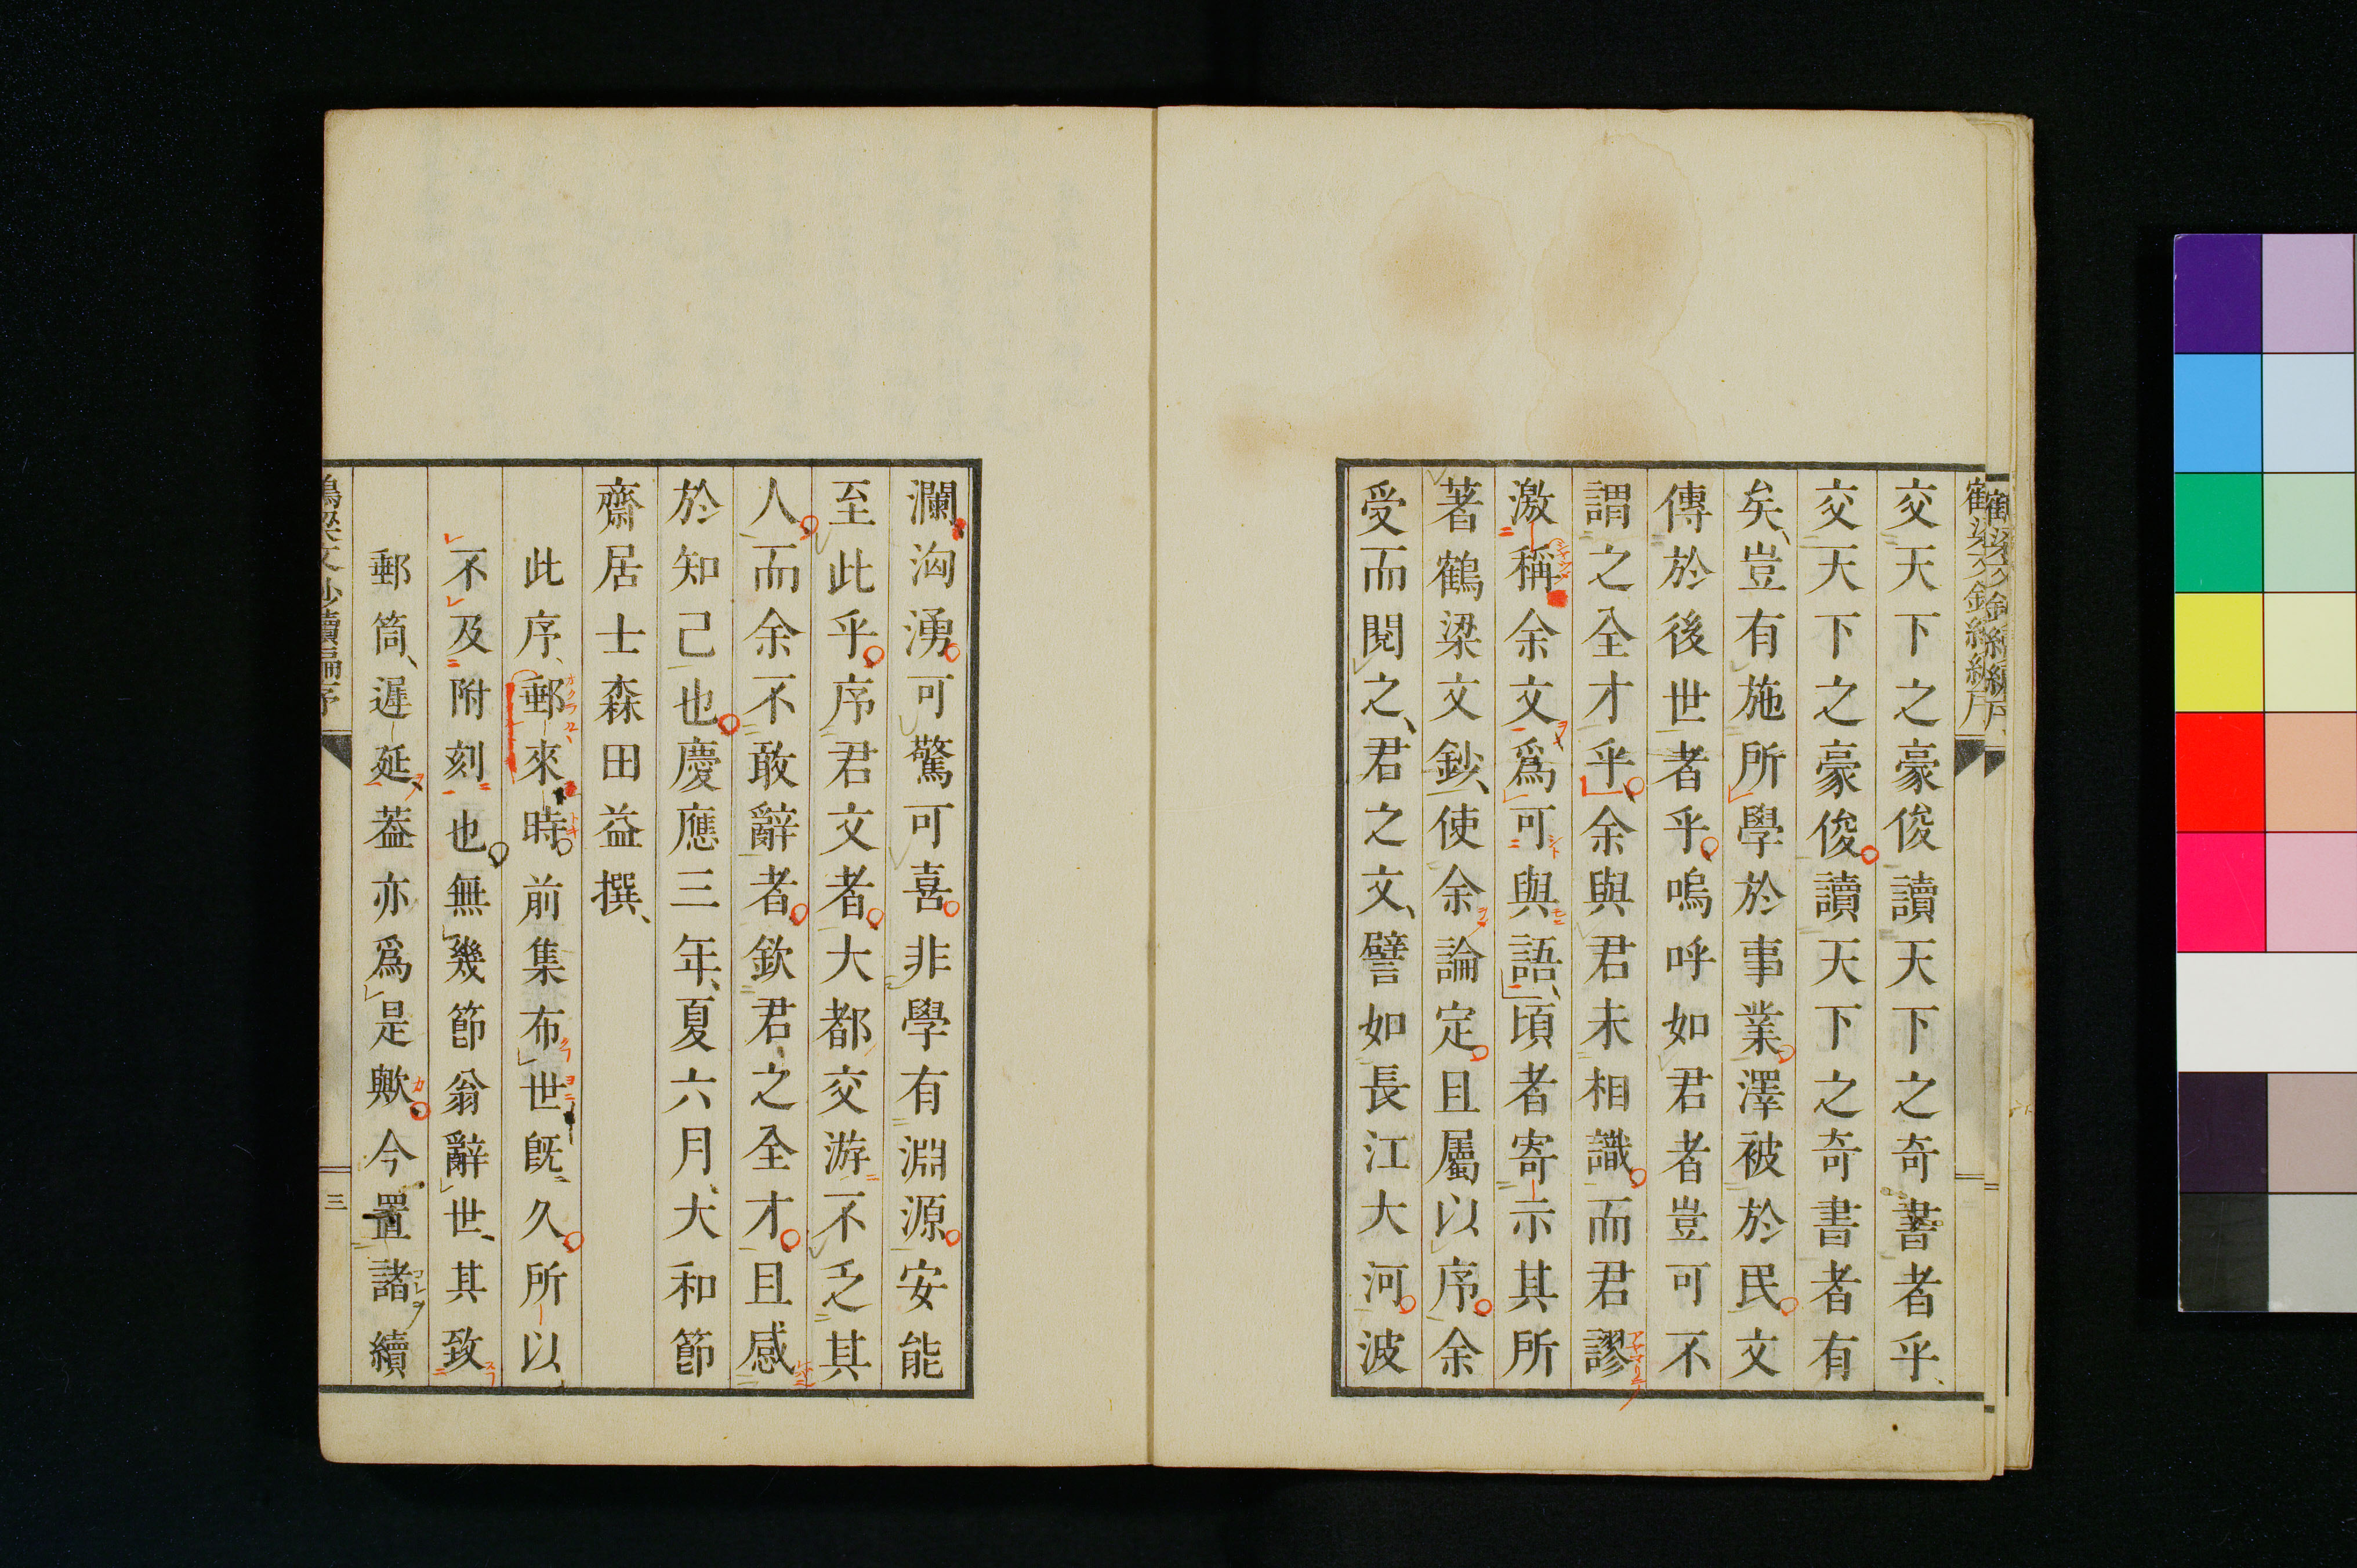 交天下之豪俊讀天下之奇書者乎、
交天下之豪俊。讀天下之奇書者有
矣、豈有施所學於事業。澤被於民。文
傳於後世者乎。嗚呼如君者豈可不
謂之全才乎。余與君未相識。而君謬
激稱余文爲可與語、頃者寄示其所
著鶴梁文鈔、使余論定。且屬以序。余
受而閱之、君之文、譬如長江大河。波
瀾洶湧。可驚可喜。非學有淵源。安能
至此乎。序君文者。大都交游不乏其
人。而余不敢辭者。欽君之全才。且感
於知己也。慶應三年、夏六月、大和節
齋居士森田益撰、
此序、郵來時。前集布世既久。所以
不及附刻也。無幾節翁辭世、其致
郵筒、遲延、葢亦爲是歟。今置諸續
鶴梁文鈔續編序
三